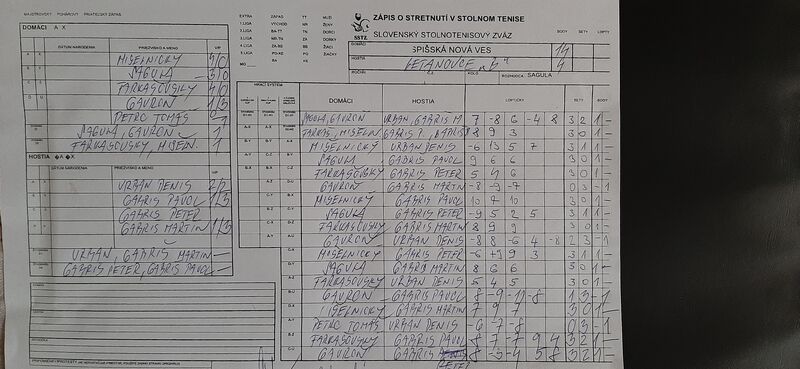 MAJSTROVSKÝ POHÁROVÝ PRIATEĽSKÝ ZÁPAS
DOMÁCI A X
DÁTUM NARODENIA PRIEZVISKO A MENO V/P
MISELNICKÝ
SAGULA 3/0
FARKASOVSKY 4/0
GAVROŇ 1/3
PETRO TOMÁŠ 0/1
SAGULA, GAVROŇ 1
FARKASOVSKY, MISELN. 1
HOSTIA
DÁTUM NARODENIA PRIEZVISKO A MENO V/P
URBAN DENIS 2/2
GABRIS PAVOL 1/3
GABRIS PETER
GABRIS MARTIN 1/3
URBAN, GABRIS MARTIN -
GABRIS PETER, GABRIS PAVOL -
EXTRA ZÁPAS TT MUŽI
1.LIGA VÝCHOD NR ŽENY
2.LIGA BA-TT TN DORCI
3.LIGA TN-ZA DO DORKY
4.LIGA ZA-BB BB ŽIACI
5.LIGA PO-KE PO ŽIAČKY
MO BA KE
SSTZ
ZÁPIS O STRETNUTÍ V STOLNOM TENISE
SLOVENSKÝ STOLNOTENISOVÝ ZVÄZ
BODY SETY LOPTY
DOMÁCI SPIŠSKÁ NOVÁ VES 14
HOSTIA LETANOVCE „B" 4
ROČNÍK Č.S. KOLO ROZHODCA SAGULA
HRACÍ SYSTÉM DOMÁCI HOSTIA LOPTIČKY SETY BODY
SAGULA, GAVROŇ URBAN, GABRIS M 7 -8 6 -4 8 3 2 1 -
FARKAS, MISELN GABRIS P., GABRIS P 8 9 3 3 0 1 -
MISELNICKÝ URBAN DENIS -6 13 5 7 3 1 1 -
SAGULA GABRIS PAVOL 9 6 6 3 0 1 -
FARKASOVSKY GABRIS PETER 5 4 6 3 0 1 -
GAVROŇ GABRIS MARTIN -8 -9 -7 0 3 - 1
MISELNICKY GABRIS PAVOL 10 7 10 3 0 1 -
SAGULA GABRIS PETER -9 5 2 5 3 1 1 -
FARKASOVSKY GABRIS MARTIN 8 9 9 3 0 1 -
GAVROŇ URBAN DENIS -8 8 -6 4 -8 2 3 - 1
MISELNICKY GABRIS PETER -6 9 3 3 1 1 -
SAGULA GABRIS MARTIN 8 6 6 3 0 1 -
FARKASOVSKY URBAN DENIS 5 4 5 3 0 1 -
GAVROŇ GABRIS PAVOL 8 -9 -11 -8 1 3 - 1
MISELNICKÝ GABRIS MARTIN 7 9 7 3 0 1 -
PETRO TOMÁŠ URBAN DENIS -6 -7 -8 0 3 - 1
FARKASOVSKY GABRIS PAVOL 8 -7 -7 9 4 3 2 1 -
GAVROŇ GABRIS PETER 8 -3 -4 5 8 3 2 1 -